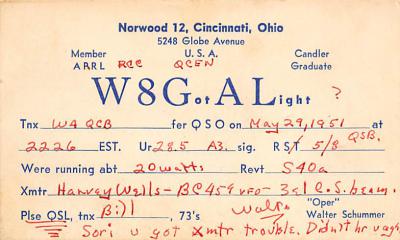 Norwood 12, Cincinnati, Ohio
5248 Globe Avenue
Member U. S. A. Candler
ARRL RCC QCEN Graduate
W8GotALight ?
Tnx W4QCB fer QSO on May 29, 1951 at
2226 EST. Ur 28.5 A3. sig. RST 5/8 QSB.
Were running abt 20watts Revt S40a
Xmtr Harvey Wells - BC459 VFO 3el C.S. beam.
"Oper"
Plse QSL, tnx Bill, 73's Walter Schummer
Sori u got xmtr trouble. Didn't hr u agn